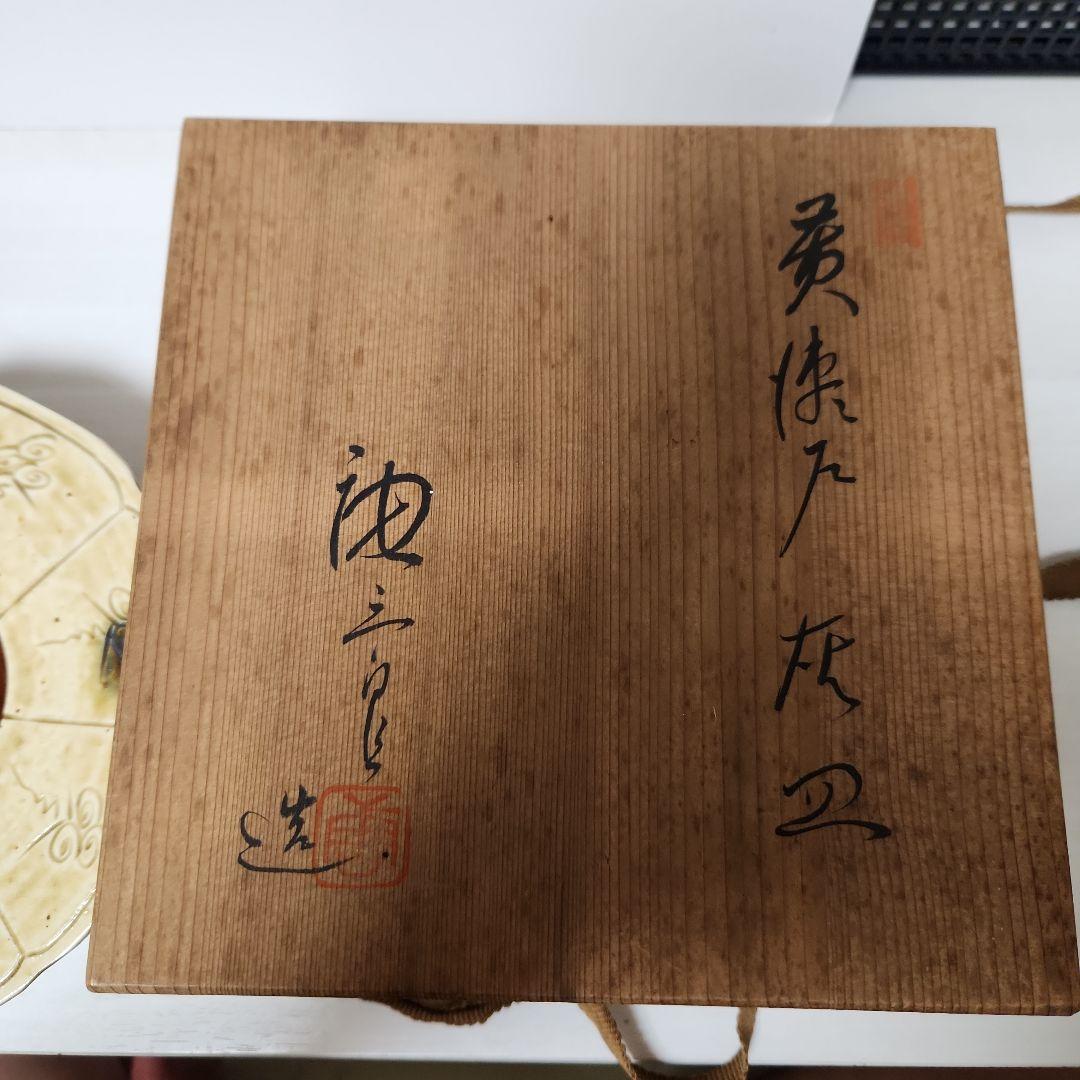 黄瀬戸 灰皿
唐三郎 造